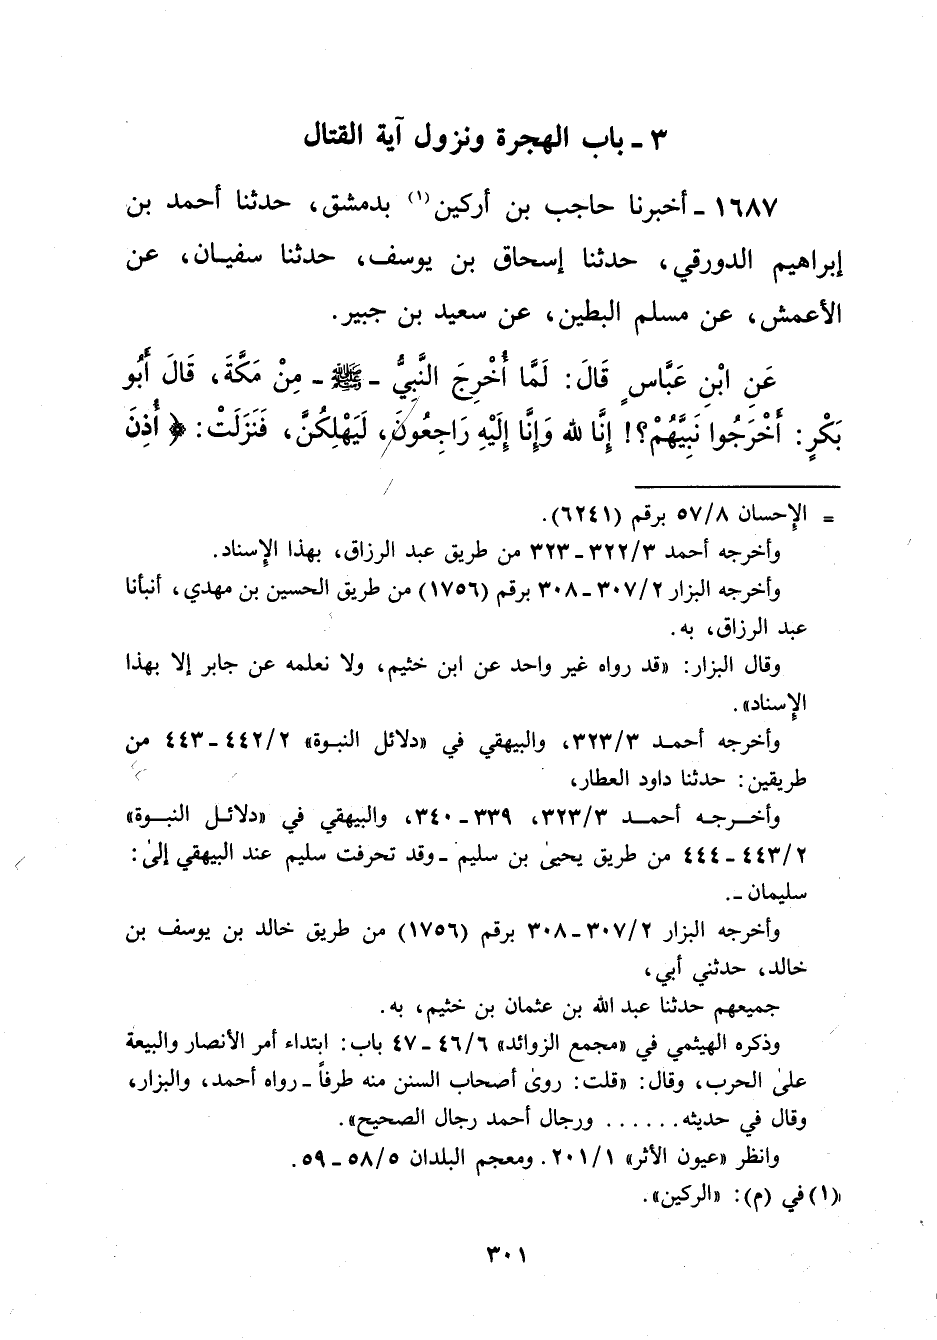 ٣ ـ باب الهجرة ونزول آية القتال
١٦٨٧ ـ أخبرنا حاجب بن أركين(١) بدمشق، حدثنا أحمد بن
إبراهيم الدورقي، حدثنا إسحاق بن يوسف، حدثنا سفيان، عن
الأعمش، عن مسلم البطين، عن سعيد بن جبير.
عَنِ ابْنِ عَبَّاسٍ قَالَ: لَمَّا أُخْرِجَ النَّبِيُّ ـ ﷺ ـ مِنْ مَكَّةَ، قَالَ أَبُو
بَكْرٍ: أَخْرَجُوا نَبِيَّهُمْ؟! إِنَّا لله وَإِنَّا إِلَيْهِ رَاجِعُونَ، لَيَهْلِكُنَّ، فَنَزَلَتْ: ﴿ أُذِنَ
= الإحسان ٥٧/٨ برقم (٦٢٤١).
وأخرجه أحمد ٣٢٢/٣ ـ ٣٢٣ من طريق عبد الرزاق، بهذا الإسناد.
وأخرجه البزار ٣٠٧/٢ ـ ٣٠٨ برقم (١٧٥٦) من طريق الحسين بن مهدي، أنبأنا
عبد الرزاق، به.
وقال البزار: «قد رواه غير واحد عن ابن خثيم، ولا نعلمه عن جابر إلا بهذا
الإسناد».
وأخرجه أحمد ٣٢٣/٣، والبيهقي في «دلائل النبوة» ٤٤٢/٢ ـ ٤٤٣ من
طريقين: حدثنا داود العطار،
وأخرجه أحمد ٣٢٣/٣، ٣٣٩ ـ ٣٤٠، والبيهقي في «دلائل النبوة»
٤٤٣/٢ ـ ٤٤٤ من طريق يحيىٰ بن سليم ـ وقد تحرفت سليم عند البيهقي إلىٰ:
سليمان ـ.
وأخرجه البزار ٣٠٧/٢ ـ ٣٠٨ برقم (١٧٥٦) من طريق خالد بن يوسف بن
خالد، حدثني أبي،
جميعهم حدثنا عبد الله بن عثمان بن خثيم، به.
وذكره الهيثمي في «مجمع الزوائد» ٤٦/٦ ـ ٤٧ باب: ابتداء أمر الأنصار والبيعة
علىٰ الحرب، وقال: «قلت: روىٰ أصحاب السنن منه طرفاً ـ رواه أحمد، والبزار،
وقال في حديثه...... ورجال أحمد رجال الصحيح».
وانظر «عيون الأثر» ٢٠١/١. ومعجم البلدان ٥٨/٥ ـ ٥٩.
(١) في (م): «الركين».
٣٠١